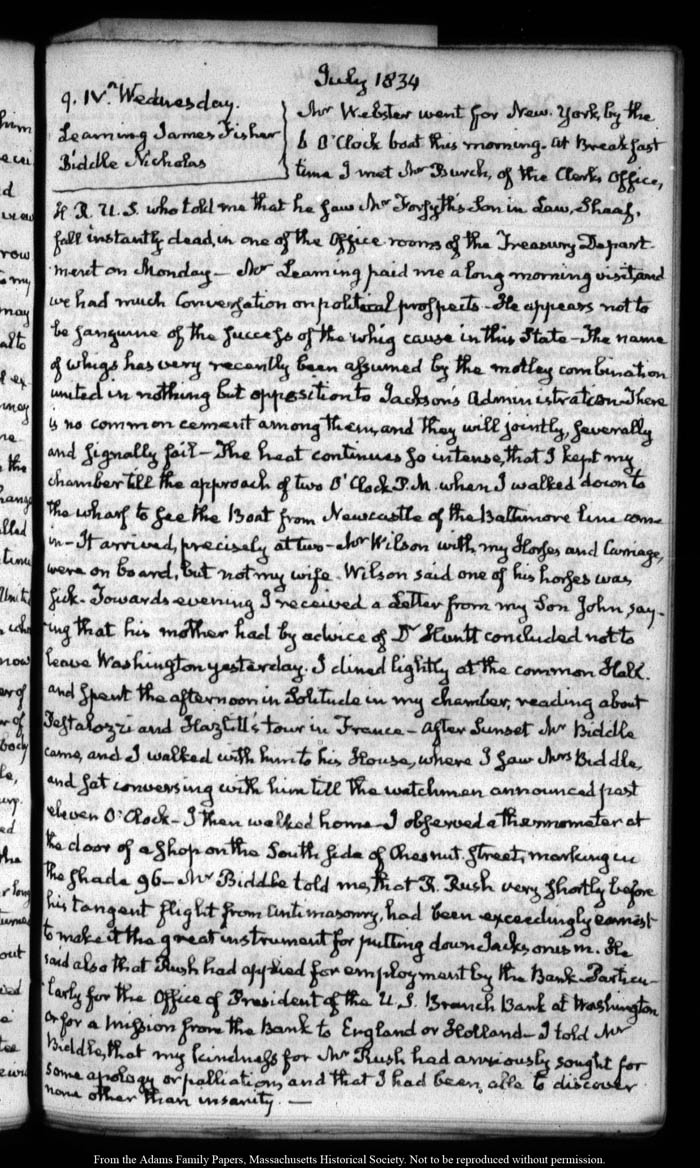 July 1834
9. IV.h Wednesday.
Leaming James Fisher
Biddle Nicholas
Mr Webster went for New-York, by the
6 O'Clock boat this morning. At Breakfast
time I met Mr Burch, of the Clerks Office,
H. R. U. S. who told me that he saw Mr Forsyth's Son in Law, Shaaf,
fall instantly dead, in one of the Office rooms of the Treasury Depart-
ment on Monday — Mr Leaming paid me a long morning visit, and
we had much Conversation on political prospects — He appears not to
be sanguine of the success of the whig cause in this State — The name
of whigs has very recently been assumed by the motley combination
united in nothing but opposition to Jackson's Administration — There
is no common cement among them, and they will jointly, severally
and signally fail — The heat continues so intense, that I kept my
chamber till the approach of two O'Clock P.M. when I walked down to
the wharf to see the Boat from Newcastle of the Baltimore line come
in — It arrived, precisely at two — Mr Wilson with my Horses and Carriage,
were on board, but not my wife. Wilson said one of his horses was
sick — Towards evening I received a Letter from my Son John, say-
ing that his mother had by advice of Dr Huntt concluded not to
leave Washington yesterday. I dined lightly at the common Hall.
and spent the afternoon in Solitude in my chamber, reading about
Pestalozzi and Hazlitt's tour in France — After Sunset Mr Biddle
came, and I walked with him to his House, where I saw Mrs Biddle,
and sat conversing with him till the watchmen announced past
eleven O'Clock — I then walked home — I observed a thermometer at
the door of a shop on the South side of Chesnut Street, marking in
the shade 96 — Mr Biddle told me, that R. Rush very shortly before
his tangent flight from Antimasonry, had been exceedingly earnest
to make it the great instrument for putting down Jacksonism. He
said also that Rush had applied for employment by the Bank — Particu-
larly for the Office of President of the U. S. Branch Bank at Washington
or for a mission from the Bank to England or Holland — I told Mr
Biddle, that my kindness for Mr Rush had anxiously sought for
some apology or palliation, and that I had been able to discover
none other than insanity. —
From the Adams Family Papers, Massachusetts Historical Society. Not to be reproduced without permission.